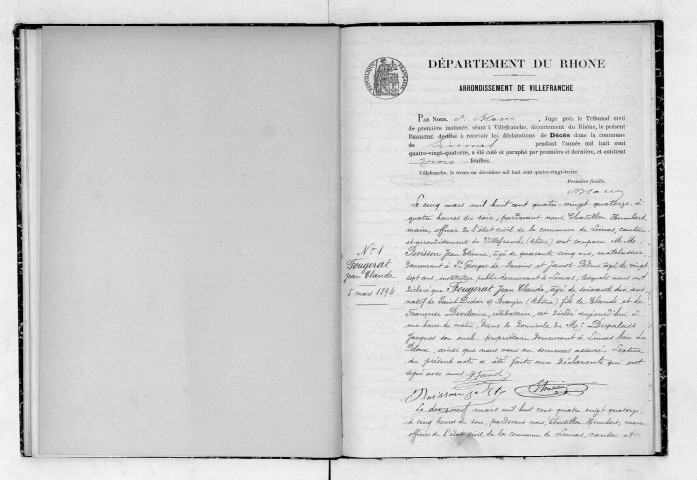 DÉPARTEMENT DU RHONE
ARRONDISSEMENT DE VILLEFRANCHE
PAR NOUS, , Juge près le Tribunal civil
de première instance, séant à Villefranche, département du Rhône, le présent
REGISTRE destiné à recevoir les déclarations de Décès dans la commune
de Limas pendant l'année mil huit cent
quatre-vingt-quatorze, a été coté et paraphé par première et dernière, et contient
trois feuilles.
Villefranche, le trente en décembre mil huit cent quatre-vingt-treize
Première feuille,
Le cinq mars mil huit cent quatre-vingt-quatorze, à
quatre heures du soir, pardevant nous, Chatillon Humbert,
maire, officier de l'état civil de la commune de Limas, canton
et arrondissement de Villefranche (Rhône) ont comparu M.M.
Buisson Jean Etienne, âgé de quarante cinq ans,
demeurant à St Georges de Reneins et âgé de vingt
sept ans, instituteur public demeurant à Limas, lesquels nous ont
déclaré que Fougerat Jean Claude, âgé de soixante dix ans
natif de Saint Didier s/ Beaujeu (Rhône) fils de Claude et de
Françoise , célibataire, est décédé aujourd'hui à
une heure du matin, dans le domicile de Mr
Jacques son oncle, propriétaire demeurant à Limas lieu du
, ainsi que nous nous en sommes assuré. Lecture
du présent acte a été faite aux déclarants qui ont
signé avec nous
N° 1
Fougerat
Jean Claude
5 mars 1894
Buisson
Le dix neuf mars mil huit cent quatre vingt quatorze,
à cinq heures du soir, pardevant nous, Chatillon Humbert, maire
officier de l'état civil de la commune de Limas, canton et